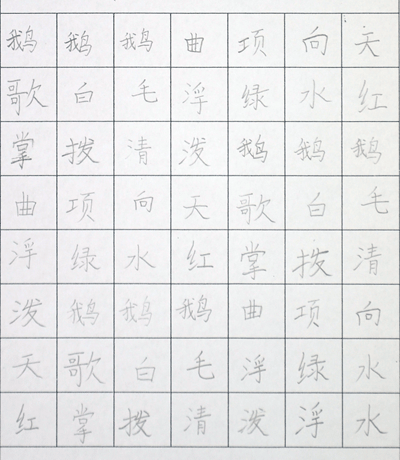 鹅鹅鹅曲项向天
歌白毛浮绿水红
掌拨清泼鹅鹅鹅
曲项向天歌白毛
浮绿水红掌拨清
泼鹅鹅鹅曲项向
天歌白毛浮绿水
红掌拨清泼浮水